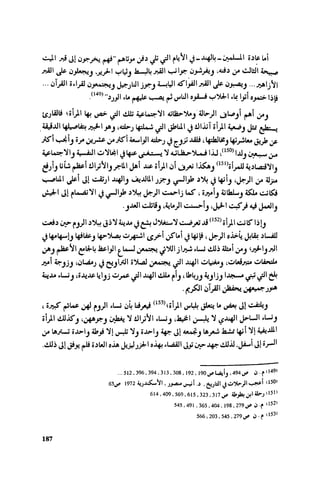 أما عادة المسلمين ـ بالهند ـ في الأيام التي تلي دفن موتاهم "فهم يخرجون إلى قبر الميت
صبيحة الثالث من دفنه. ويفرشون جوانب القبر بالبسط وثياب الحرير. ويجعلون على القبر
الأزاهير... ويصبون على القبر الفواكه اليابسة وجوز النارجيل ويجتمعون لقراءة القرآن ...
فإذا ختموه أتوا بماء الجلاب فسقوه الناس ثم يصب عليهم ماء الورد" (149).
ومن أهم أوصاف الرحالة وملاحظاته الاجتماعية تلك التي خص بها المرأة؛ فالقارئ
يستطيع تمثل وضعية المرأة آنذاك في المناطق التي شملتها رحلته، وهو الخبير بتفاصيلها الدقيقة
عن طريق معاشرتها ومخالطتها، فلقد تزوج في رحلته الواسعة أكثر من عشرين مرة وأنجب أكثر
من سبعين ولدا (150)، لذا فملاحظاته لا يستغنى عنها في المجالات النفسية والاجتماعية
والاقتصادية للمرأة (151) وهكذا نعرف أن المرأة عند أهل المجر والأتراك أعظم شأنا وأرفع
منزلة من الرجل، وأنها في بلاد طوالسي وجزر المالديف والهند ارتقت إلى أعلى المناصب
فكانت ملكة وسلطانة وأميرة ، كما زاحمت الرجل ببلاد طوالسي في الانضمام إلى الجيش
والعمل فيه فركبت الخيل، وأحسنت الرماية، وقاتلت العدو .
وإذا كانت المرأة (152) قد تعرضت لاستغلال بشع في مدينة لاذق ببلاد الروم حين دفعت
للفساد مقابل يأخذه الرجل ، فإنها في أماكن أخرى اشتهرت بصلاحها وعفافها وإسهامها في
البر والخير؛ ومن أمثلة ذلك نساء شيراز اللائي يجتمعن لسماع الواعظ بالجامع الأعظم وهن
ملتحفات متبرقعات، ومغنيات الهند التي يجتمعن لصلاة التراويح في رمضان، وزوجة أمير
بلخ التي تبني مسجدا وزاوية ورباطا، وأم ملك الهند التي عمرت زوايا عديدة، ونساء مدينة
هنور جميعهن يحفظن القرآن الكريم .
ويلتفت إلى بعض ما يتعلق بلباس المرأة (153) فيعرفنا بأن نساء الروم لهن عمائم كبيرة ،
ونساء الساحل الهندي لا يلبسن المخيط، ونساء الأتراك لا يغطين وجوههن، وكذلك المرأة
المالديفية إلا أنها تمشط شعرها وتجمعه إلى جهة واحدة ولا تلبس إلا فوطة واحدة تسترها من
السرة إلى أسفل. لذلك جهد حين تولى القضاء بهذه الجزر ليزيل هذه العادة فلم يوفق إلى ذلك.
(149) م . ن ص 494 ، وأيضا ص 190 ، 192 ، 308 ، 313 ، 394 ، 396 ، 512 ...
(150) أعجب الرحلات في التاريخ . د. أنيس منصور ، الأسكندرية 1972 ص 65
(151) رحلة ابن بطوطة ص 317 ، 323 ، 615 ، 369 ، 409 ، 614
(152) م . ن ص 279 ، 198 ، 404 ، 365 ، 491 ، 549
(153) م . ن ص 279 ، 545 ، 203 ، 566
187